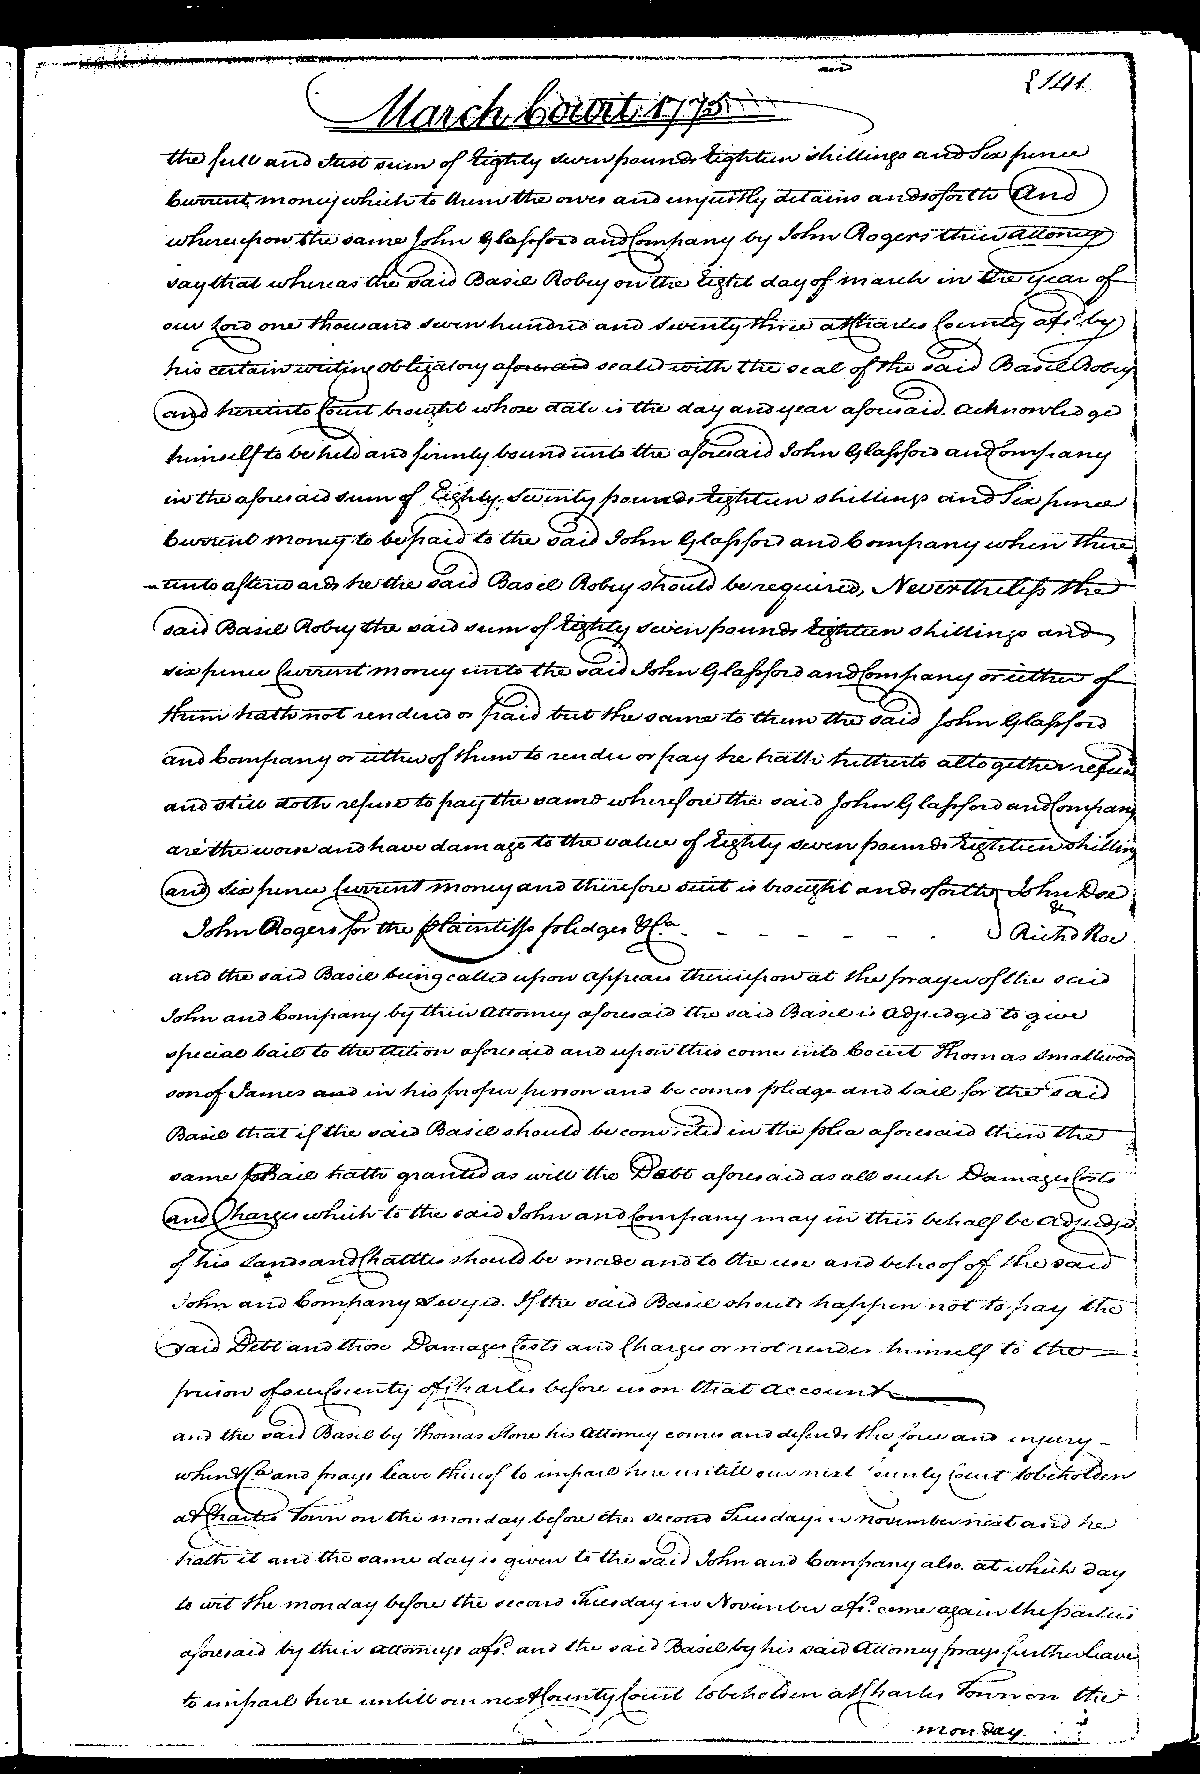 141
March Court 1775
the full and Just sum of Eighty seven pounds Eighteen shillings and Six pence
Current money which to them the owes and unjustly detains and soforth And
whereupon the same John Glassford and Company by John Rogers their attorney
say that whereas the said Basil Robey on the Eight day of march in the year of
our Lord one thousand seven hundred and seventy three at Charles County afsd. by
his certain writing obligatory aforesaid sealed with the seal of the said Basil Robey
and here into Court brought whose date is the day and year aforesaid. acknowledged
himself to be held and firmly bound unto the aforesaid John Glassford and Company
in the aforesaid sum of Eighty Seventy pounds Eighteen shillings and Six pence
Current money to be paid to the said John Glassford and Company when there
unto afterwards he the said Basil Robey should be required, Nevertheless the
said Basil Robey the said sum of Eighty seven pounds Eighteen shillings and
six pence Current money unto the said John Glassford and Company or either of
them hath not rendered or paid but the same to them the said John Glassford
and Company or either of them to render or pay he hath hitherto altogether refused
and still doth refuse to pay the same wherefore the said John Glassford and Company
are the worse and have damage to the value of Eighty seven pounds Eighteen shilling
and six pence Current money and therefore suit is brought and soforth John Doe
&
John Rogers for the plaintiffs pledges &Ca. Richd Roe
and the said Basil being called upon appears thereupon at the prayer of the said
John and Company by their Attorney aforesaid the said Basil is Adjudged to give
special bail to the Action aforesaid and upon this come into Court Thomas Smallwood
son of James and in his proper person and becomes pledge and bail for the said
Basil that if the said Basil should be convicted in the plea aforesaid then the
same Bail hath granted as will the Debt aforesaid as all such Damages Costs
and Charges which to the said John and Company may in this behalf be Adjudged
of his Lands and Chattles should be made and to the use and behoof of the said
John and Company Levyed. If the said Basil should happen not to pay the
said Debt and those Damages Costs and Charges or not render himself to the
prison of our County of Charles before us on that account
and the said Basil by Thomas Stone his Attorney comes and defends the force and injury
when &Ca and prays leave thereof to imparl here untill our next County Court tobeholden
at Charles Town on the monday before the second Tuesday in november next and he
hath it and the same day is given to the said John and Company also. at which day
to wit the monday before the second Tuesday in November afsd. come again the parties
aforesaid by their attorneys afsd. and the said Basil by his said Attorney prays further leave
to imparl here untill our next County Court tobeholden at Charles Town on the
monday